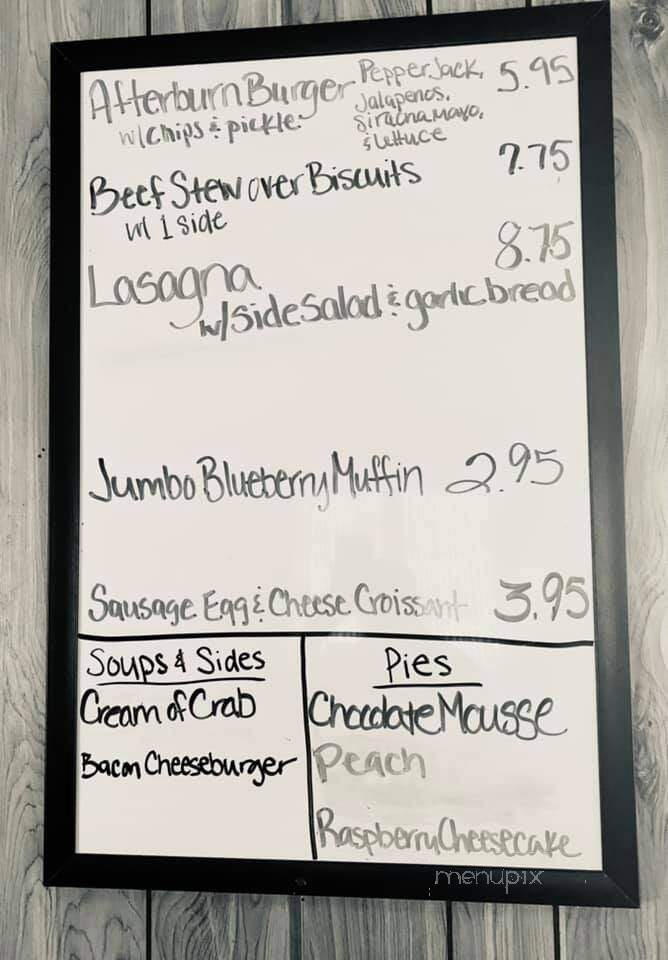 Afterburn Burger Pepper Jack, 5.95
Jalapenos,
w/chips & pickle Siracha Mayo,
& Lettuce
Beef Stew over Biscuits 7.75
w/ 1 side
Lasagna 8.75
w/side salad & garlic bread
Jumbo Blueberry Muffin 2.95
Sausage Egg & Cheese Croissant 3.95
Soups & Sides
Cream of Crab
Bacon Cheeseburger
Pies
Chocolate Mousse
Peach
Raspberry Cheesecake
menupix